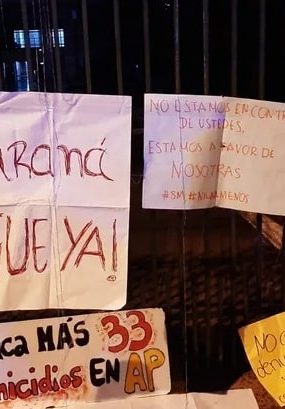 aRaná
GUE YA!
NO ESTAMOS EN CONTR
DE USTEDES,
ESTAMOS A FAVOR DE
NOSOTRAS
#NIUNAMENOS
ca MÁS 33
micidios EN AP
NO
denu